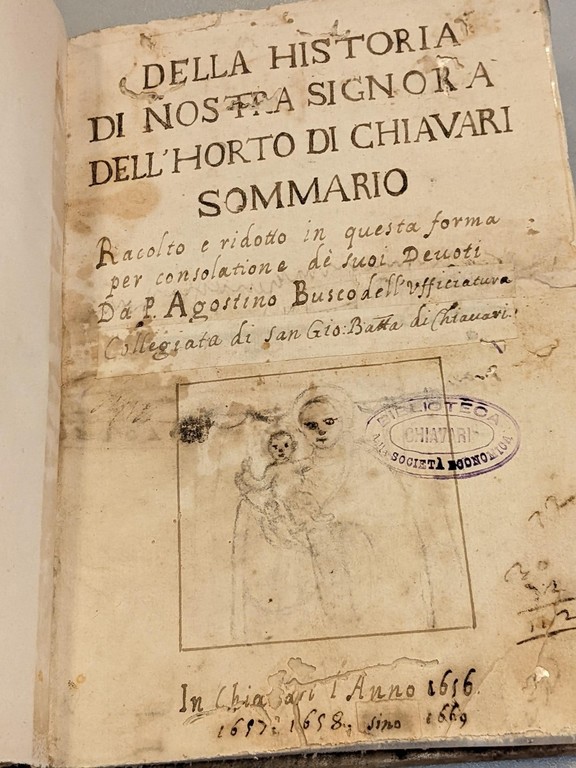 DELLA HISTORIA
DI NOSTRA SIGNORA
DELL'HORTO DI CHIAVARI
SOMMARIO
Racolto e ridotto in questa forma
per consolatione dè suoi Deuoti
Da P. Agostino Busco dell'Vfficiatura
Collegiata di San Gio: Batta di Chiauari.
BIBLIOTECA
CHIAVARI
SOCIETÀ ECONOMICA
In Chiavari l'Anno 1656.
1657: 1658, sino 1669